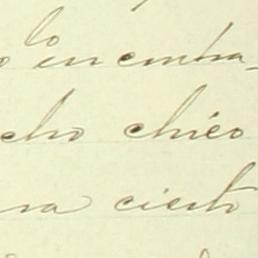 lo
o encontra-
cho chico
na cierto